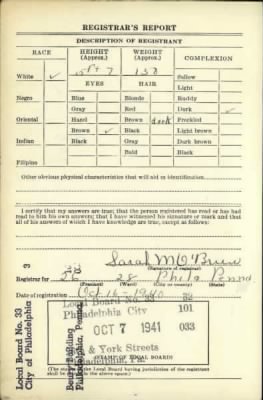 REGISTRAR'S REPORT
DESCRIPTION OF REGISTRANT
RACE HEIGHT (Approx.) WEIGHT (Approx.) COMPLEXION
White ✓ 5 ft 7 138 Sallow
EYES HAIR Light
Negro Blue Blonde Ruddy
Gray Red Dark ✓
Oriental Hazel Brown dark Freckled
Brown ✓ Black Light brown
Indian Black Gray Dark brown
Bald Black
Filipino
Other obvious physical characteristics that will aid in identification
I certify that my answers are true; that the person registered has read or has had
read to him his own answers; that I have witnessed his signature or mark and that
all of his answers of which I have knowledge are true, except as follows:
Sarah M O'Brien
(Signature of registrar)
Registrar for 28 Phila Penna
(Precinct) (Ward) (City or county) (State)
Date of registration Oct 16 - 1940
Local Board No. 33
Philadelphia City 101
OCT 7 1941 033
& York Streets
Philadelphia, Pa.
(STAMP OF LOCAL BOARD)
(The stamp of the Local Board having jurisdiction of the registrant
shall be placed in the above space.)
Local Board No. 33
City of Philadelphia
3